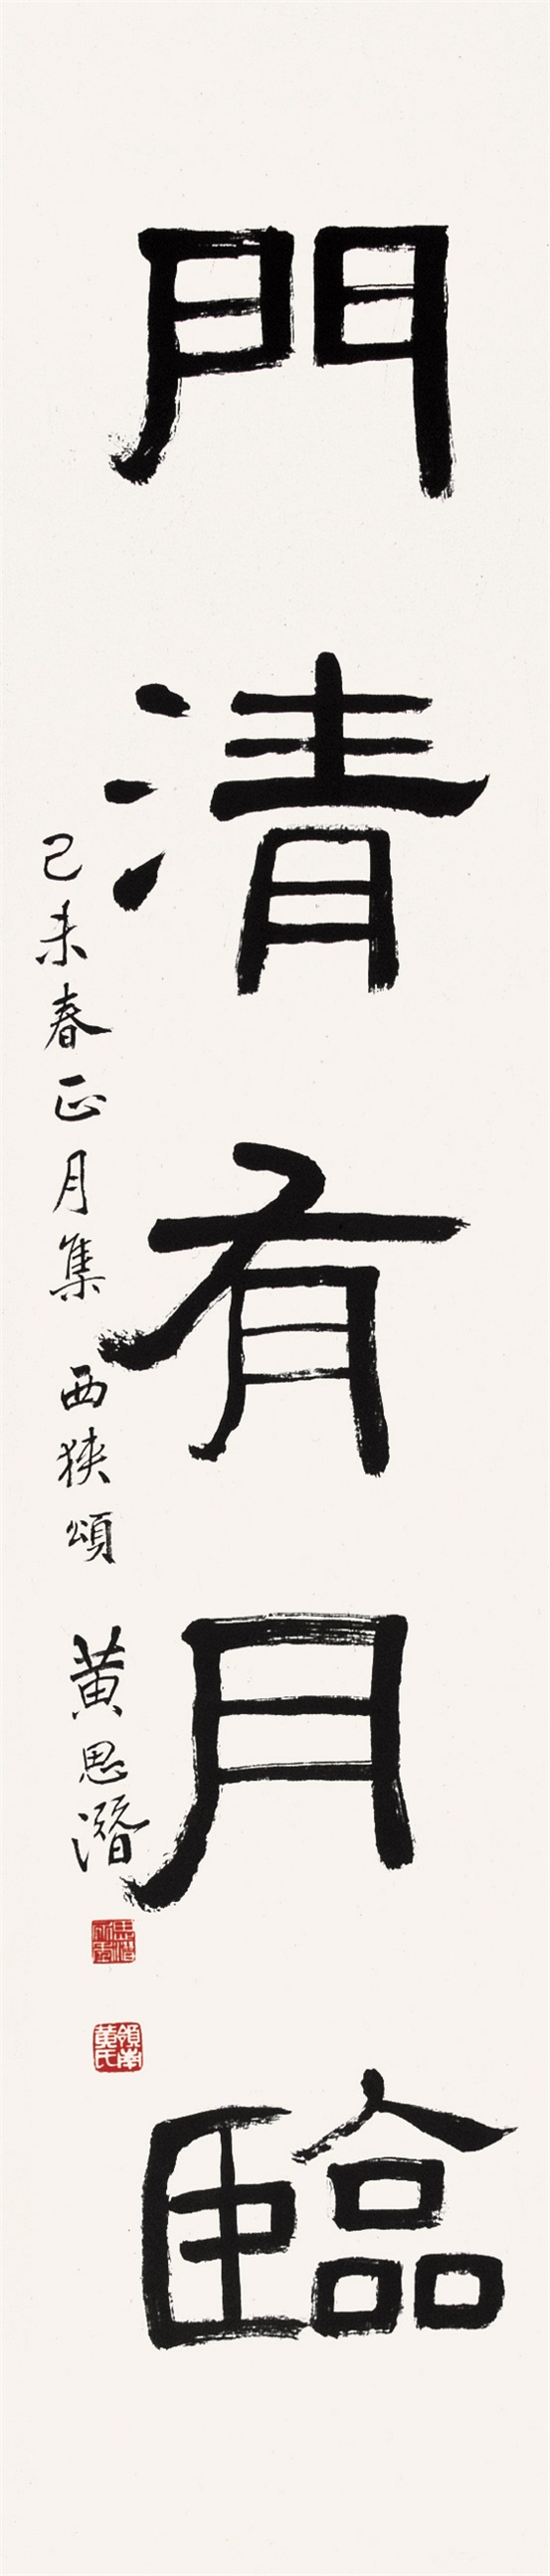 門清有月臨
己未春正月集 西狹頌 黄思潛
嶺南黄氏